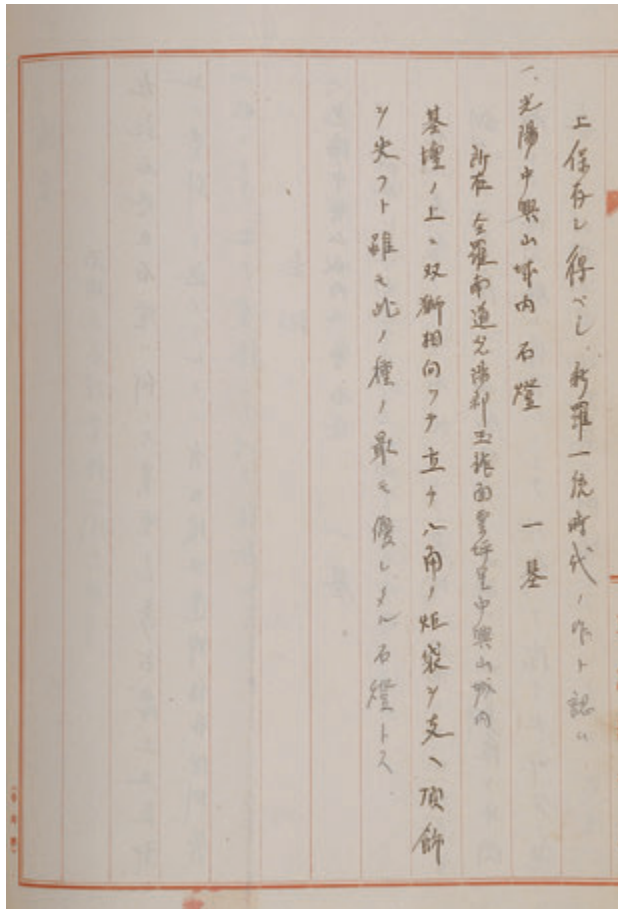 上保存シ得ベシ、新羅一統時代ノ作ト認ム
一、光陽中興山城内石燈 一基
所在 全羅南道光陽郡玉龍面雲坪里中興山城内
基壇ノ上ニ双獅相向フテ立チ八角ノ炬袋ヲ支ヘ頂飾
ヲ失フト雖モ此ノ種ノ最モ優レタル石燈トス